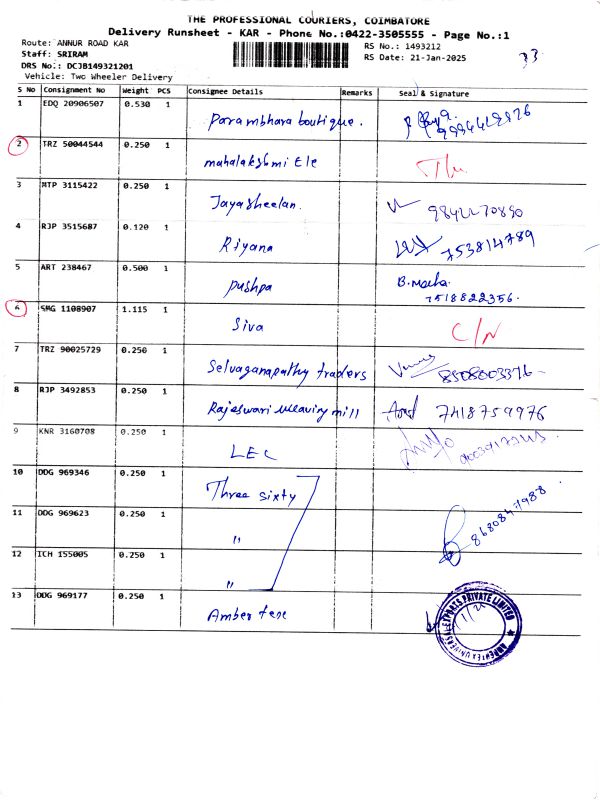 THE PROFESSIONAL COURIERS, COIMBATORE
Delivery Runsheet - KAR - Phone No.:0422-3505555 - Page No.:1
Route: ANNUR ROAD KAR
RS No.: 1493212
Staff: SRIRAM
RS Date: 21-Jan-2025
33
DRS No.: DCJB149321201
Vehicle: Two Wheeler Delivery
S No Consignment No Weight PCS Consignee Details Remarks Seal & Signature
1 EDQ 20906507 0.530 1 Parambhara boutique.
2 TRZ 50044544 0.250 1 mahalakshmi Ele
3 MTP 3115422 0.250 1 Jayasheelan. 9842270890
4 RJP 3515687 0.120 1 Riyana 753814789
5 ART 238467 0.500 1 pushpa B.
7518822356.
6 SMG 1108907 1.115 1 Siva C/N
7 TRZ 90025729 0.250 1 Selvaganapathy traders 8508003376
8 RJP 3492853 0.250 1 Rajeswari weaving mill 7418759976
9 KNR 3160708 0.250 1 LEC
10 DDG 969346 0.250 1 Three sixty
11 DDG 969623 0.250 1 " 8680847988
12 ICH 155005 0.250 1 "
13 DDG 969177 0.250 1 Amber
UNIVERSAL EXPORTS PRIVATE LIMITED